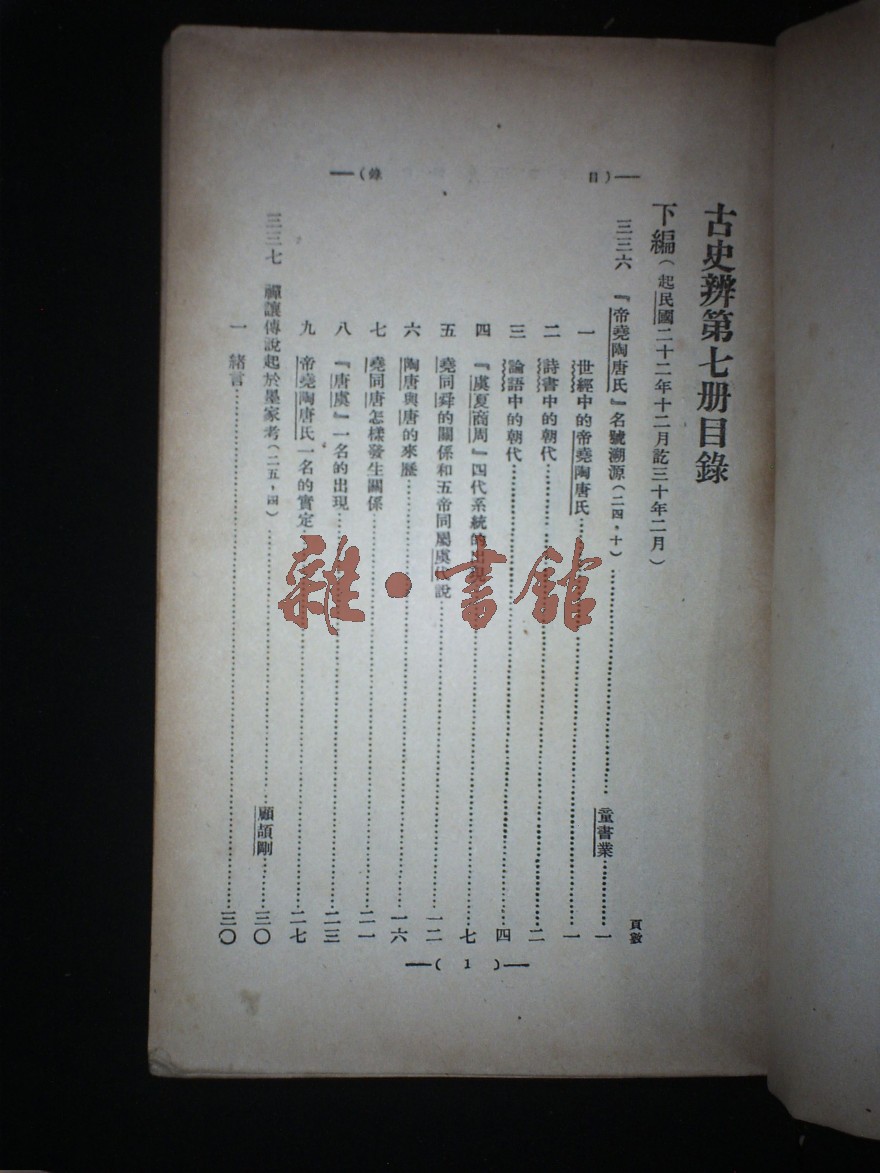 目錄
古史辨第七册目錄
下編（起民國二十二年十二月訖三十年二月）
頁數
三三六 『帝堯陶唐氏』名號溯源（二四，十）……童書業……一
一 世經中的帝堯陶唐氏……一
二 詩書中的朝代……二
三 論語中的朝代……四
四 『虞夏商周』四代系統的出現……七
五 堯同舜的關係和五帝同屬虞代說……一二
六 陶唐與唐的來歷……一六
七 堯同唐怎樣發生關係……二一
八 『唐虞』一名的出現……二三
九 帝堯陶唐氏一名的實定……二七
三三七 禪讓傳說起於墨家考（二五，四）……顧頡剛……三〇
一 緒言……三〇
（1）
雜·書館